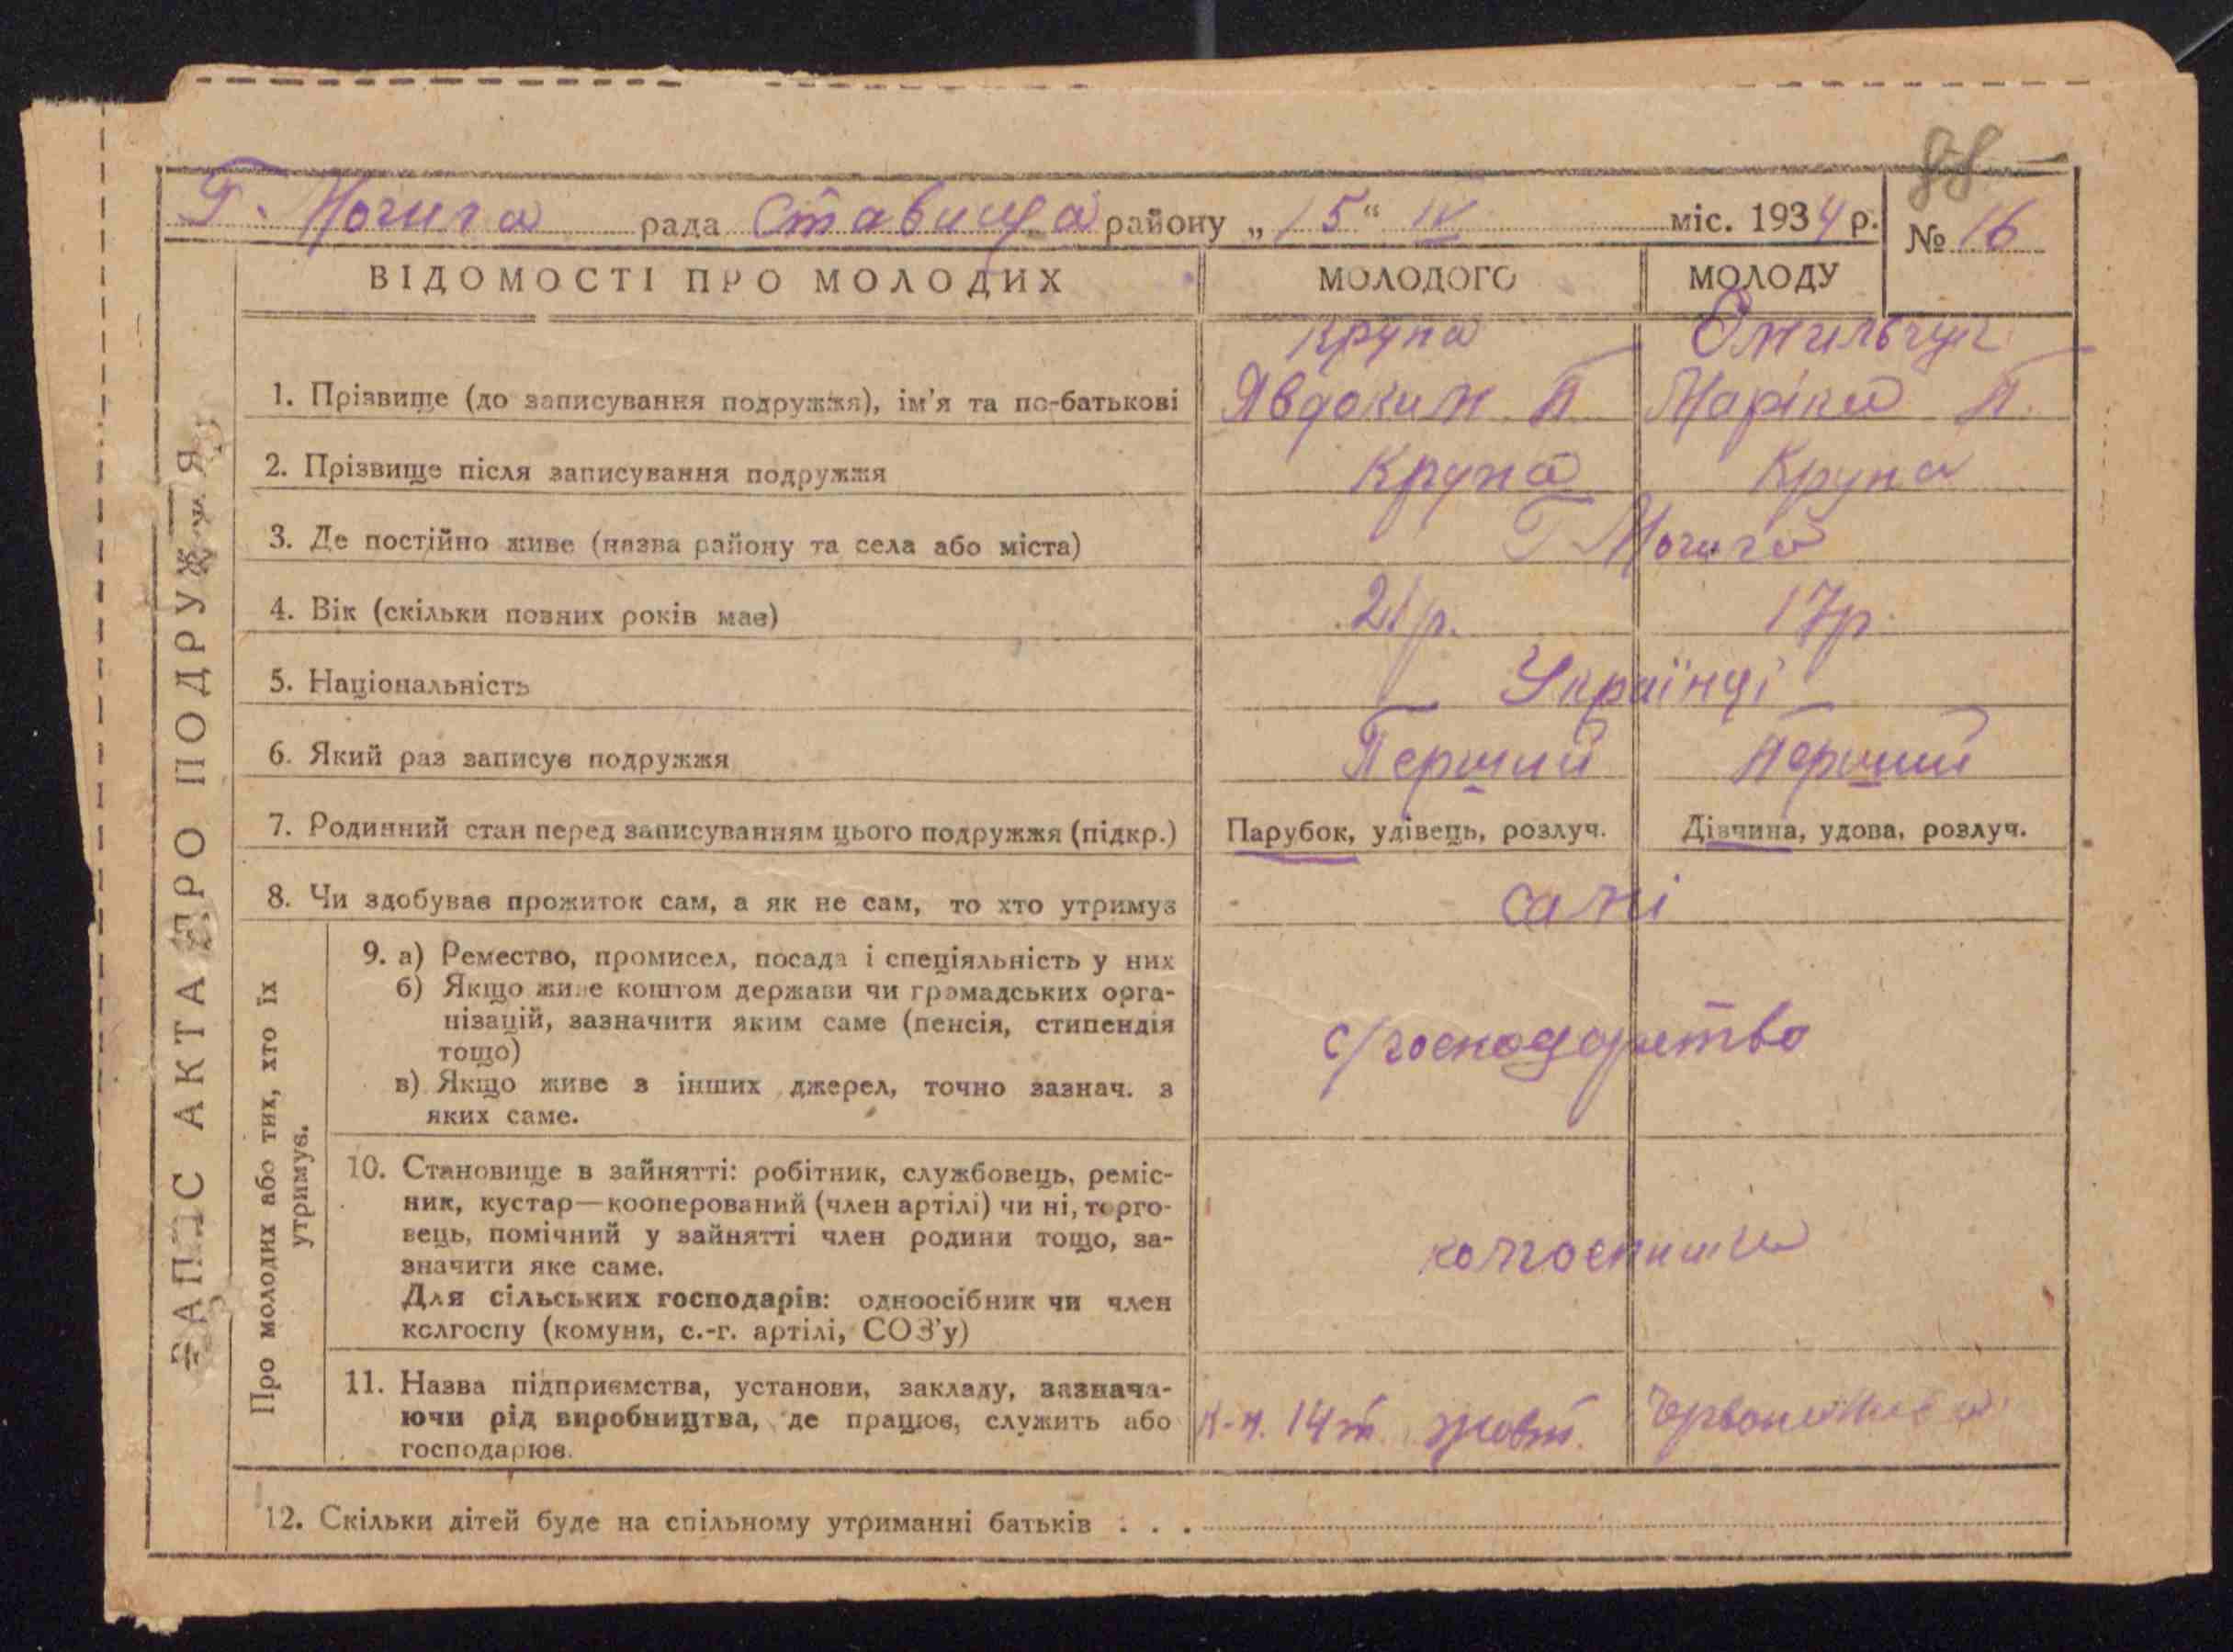 88
Г. Могила рада Ставища району „15“ IV міс. 1934 р. № 16
ВІДОМОСТІ ПРО МОЛОДИХ МОЛОДОГО МОЛОДУ
Крупа Омильчук
1. Прізвище (до записування подружжя), ім’я та по-батькові Явдоким П. Маріка П.
2. Прізвище після записування подружжя Крупа Крупа
3. Де постійно живе (назва району та села або міста) Г Могила
4. Вік (скільки повних років має) 21 р. 17 р.
5. Національність Українці
6. Який раз записує подружжя Перший Перший
7. Родинний стан перед записуванням цього подружжя (підкр.) Парубок, удівець, розлуч. Дівчина, удова, розлуч.
8. Чи здобуває прожиток сам, а як не сам, то хто утримує самі
9. а) Ремество, промисел, посада і спеціяльність у них
б) Якщо живе коштом держави чи громадських орга-
нізацій, зазначити яким саме (пенсія, стипендія
тощо)
с/господарство
в) Якщо живе з інших джерел, точно зазнач. з
яких саме.
10. Становище в зайнятті: робітник, службовець, реміс-
ник, кустар—кооперований (член артілі) чи ні, торго-
вець, помічний у зайнятті член родини тощо, за-
значити яке саме.
колгоспники
Для сільських господарів: одноосібник чи член
колгоспу (комуни, с.-г. артілі, СОЗ’у)
11. Назва підприємства, установи, закладу, зазнача-
ючи рід виробництва, де працює, служить або
господарює.
14т. жовт.
12. Скільки дітей буде на спільному утриманні батьків . . .
ЗАПИС АКТА ПРО ПОДРУЖЖЯ
Про молодих або тих, хто їх
утримує.